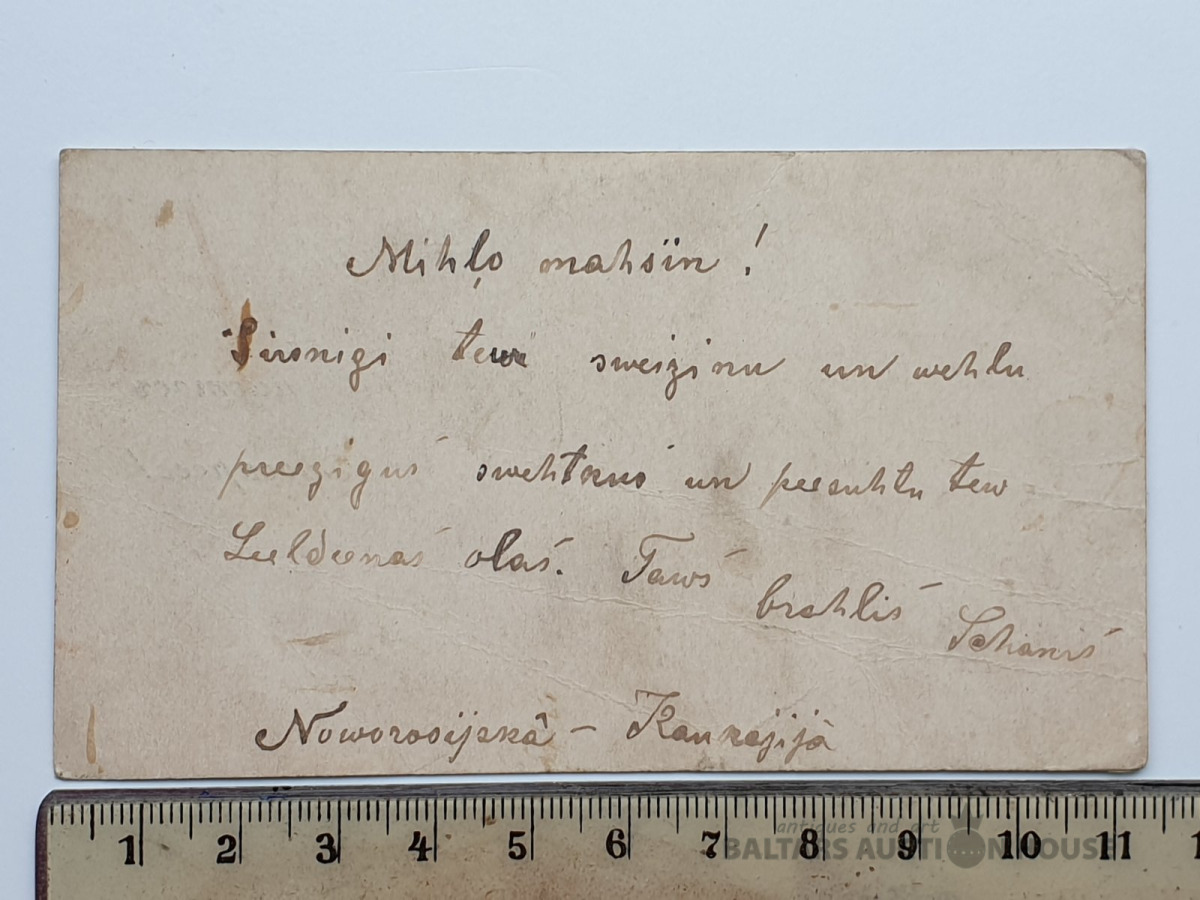 Mihļo mahsiin!
Sirsnigi tew sweizinu un wehlu
preezigus swehtkus un peesuhtu tew
Leeldeenas olas. Taws
brahlis
Schanis
Noworosijskâ – Kaukasijâ
1 2 3 4 5 6 7 8 9 10 11
antiques and art
BALTARS AUCTION HOUSE